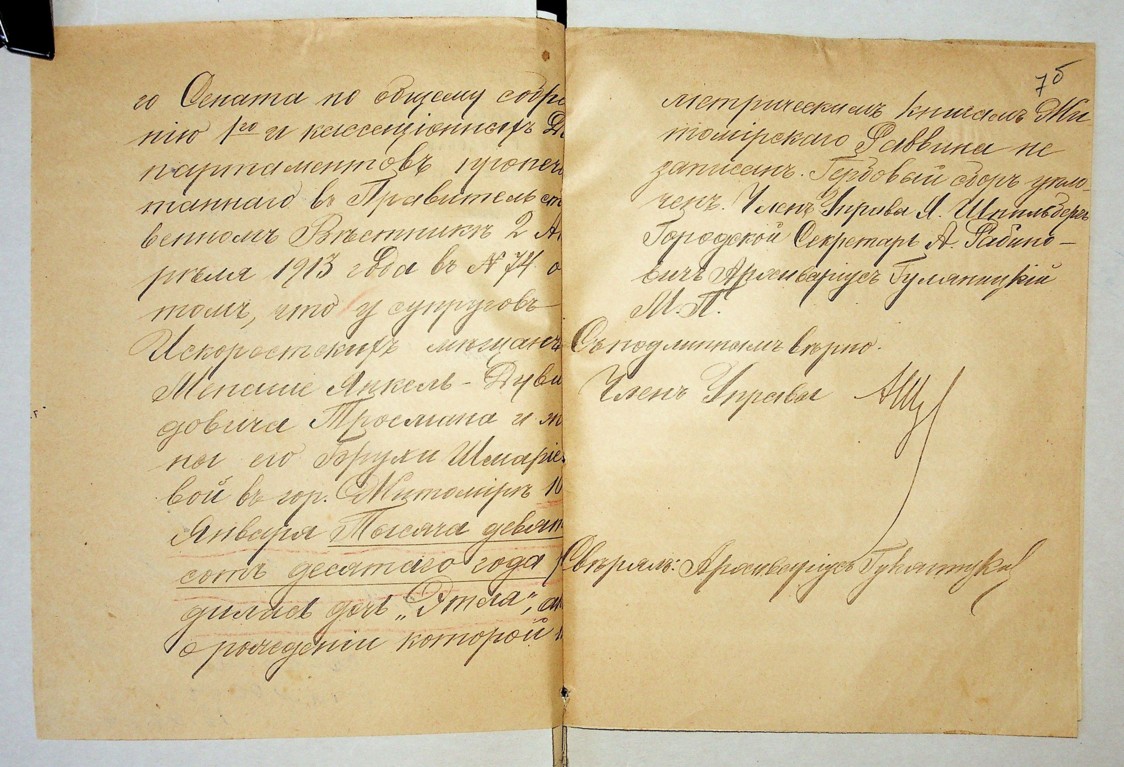 го Сената по общему собра
нію 1го и кассаціонныхъ Де
партаментовъ пропеча
таннаго въ Правительст
венномъ Вѣстникѣ 2 Ап
рѣля 1913 года въ N 74 о
томъ, что у супруговъ
Искоростскихъ мѣщанъ
Менаше Янкель-Дуви
довича Тросмана и же
ны его Брухи Шмаріе
вой въ гор. Житомірѣ 10
Января Тысяча девят
сотъ десятаго года ро
дилась дочь „Этля“,
о рожденіи которой
7б
метрическимъ книгамъ Жи
томірскаго Раввина не
записанъ. Гербовый сборъ упла-
ченъ. Членъ Управы Я. Шпильбергъ
Городской Секретарь А. Рабино-
вичъ Архиваріусъ Гуляницкій
М.П.
Съ подлиннымъ вѣрно.
Членъ Управы
Свѣрялъ: Архиваріусъ Гуляницкій